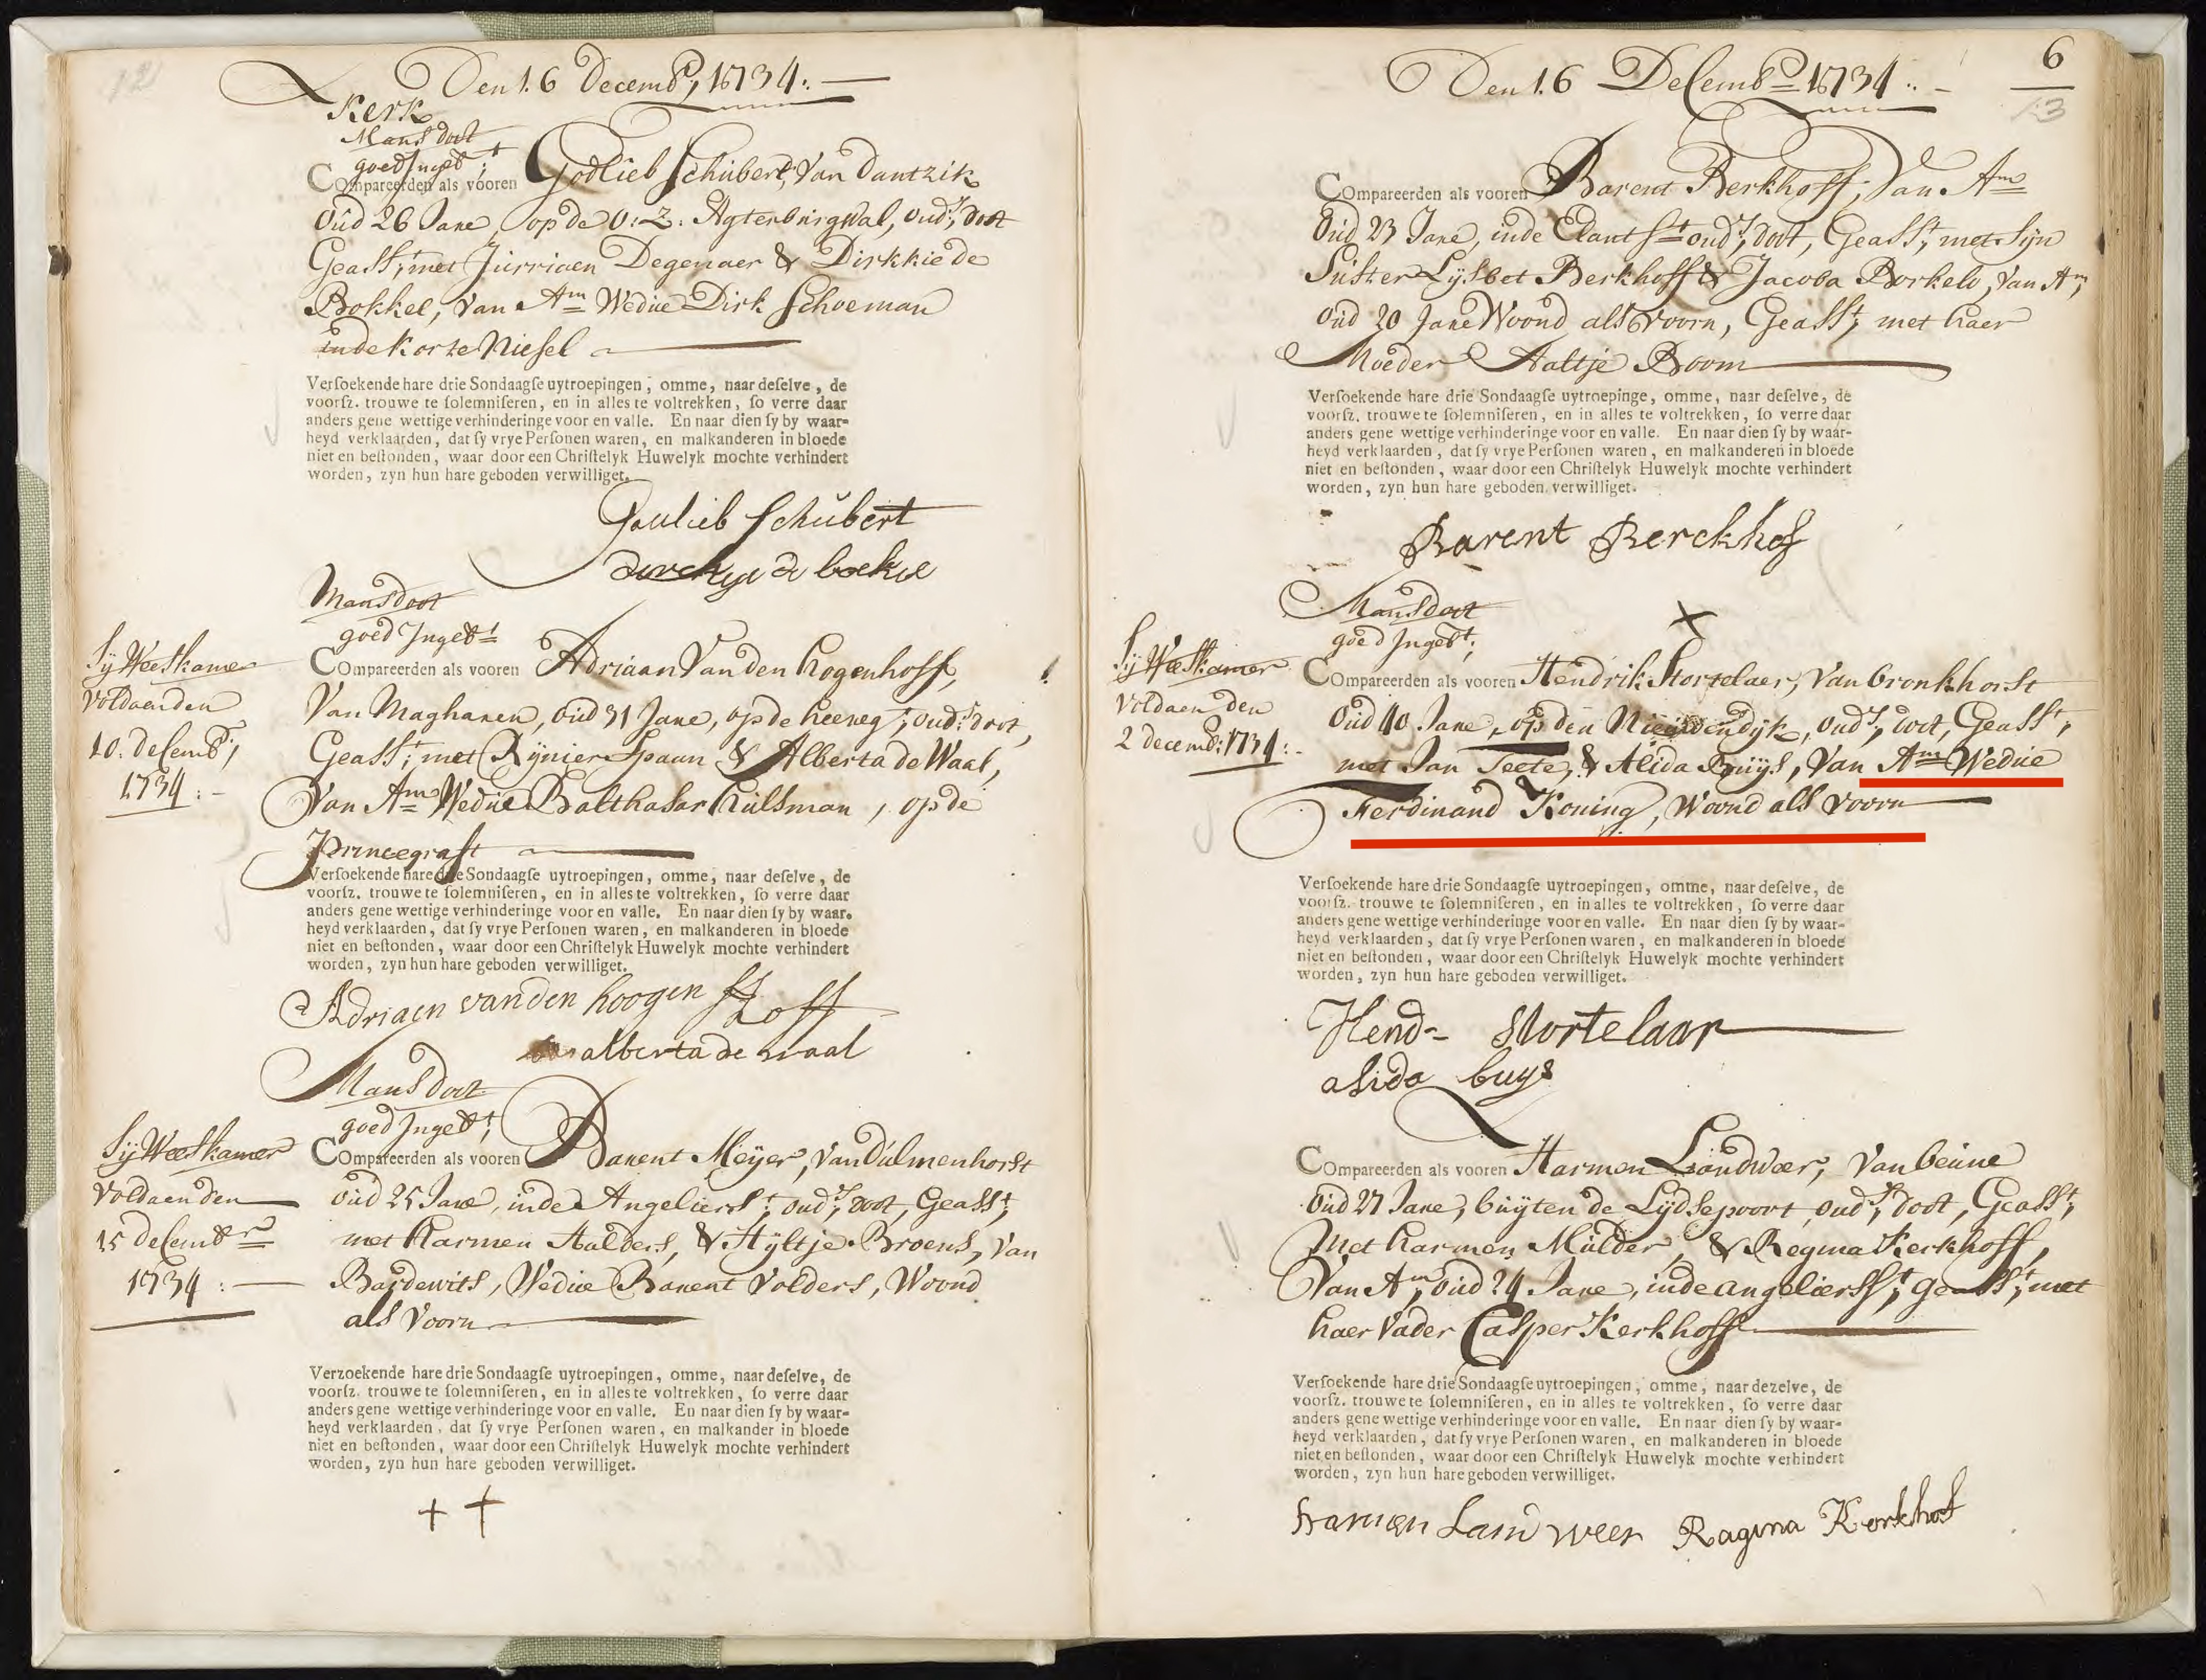 12
Den 16 Decemb, 1734:
Kerk
Mans doot
goed Ingebt:
Compareerden als vooren Godlieb Schubert, Van Dantzik
Oud 26 Jare, op de O:Z: Agterburgwal, Oud,s, doot
Geasst, met Jurriaen Degenaer & Dirkkie de
Bokkel, Van Am Wedue Dirk Schoeman
in de Korte Niesel
Verſoekende hare drie Sondaagſe uytroepingen, omme, naar deſelve, de
voorſz. trouwe te ſolemniſeren, en in alles te voltrekken, ſo verre daar
anders gene wettige verhinderinge voor en valle. En naar dien ſy by waar-
heyd verklaarden, dat ſy vrye Perſonen waren, en malkanderen in bloede
niet en beſtonden, waar door een Chriſtelyk Huwelyk mochte verhindert
worden, zyn hun hare geboden verwilliget.
Gotlieb Schubert
Mans doot
goed Ingebt
Sij Weeskamer
voldaen den
10. decemb,
1734:
Compareerden als vooren Adriaan Van den Hogenhoff,
Van Magharen, oud 31 Jare, op de heereg,t, oud,s doot,
Geasst, met Rynier Spaan & Alberta de Waal,
Van Am Wedue Balthasar Hulsman, op de
Princegraft
Verſoekende hare drie Sondaagſe uytroepingen, omme, naar deſelve, de
voorſz. trouwe te ſolemniſeren, en in alles te voltrekken, ſo verre daar
anders gene wettige verhinderinge voor en valle. En naar dien ſy by waar-
heyd verklaarden, dat ſy vrye Perſonen waren, en malkanderen in bloede
niet en beſtonden, waar door een Chriſtelyk Huwelyk mochte verhindert
worden, zyn hun hare geboden verwilliget.
Adriaen van den hoogen hoff
alberta de waal
Mans doot
goed Ingebt,
Sij Weeskamer
voldaen den
15 decembr
1734:
Compareerden als vooren Barent Meijer, van Dulmenhorst
Oud 25 Jare, inde Angelierst, oud,s, doot, Geasst,
met Harmen Aalders, & Hyltje Broens, Van
Bardewits, Wedue Barent Volders, Woond
als voorn
Verzoekende hare drie Sondaagſe uytroepingen, omme, naar deſelve, de
voorſz. trouwe te ſolemniſeren, en in alles te voltrekken, ſo verre daar
anders gene wettige verhinderinge voor en valle. En naar dien ſy by waar-
heyd verklaarden, dat ſy vrye Perſonen waren, en malkander in bloede
niet en beſtonden, waar door een Chriſtelyk Huwelyk mochte verhindert
worden, zyn hun hare geboden verwilliget.
6
13
Den 16 Decemb 1734:
Compareerden als vooren Barent Berkhoff, Van Am
Oud 23 Jare, inde Elantst oud,s, doot, Geasst, met Sijn
Suster Lijsbet Berkhoff & Jacoba Borkelo, Van Am,
oud 20 Jare Woond als Voorn, Geasst, met haer
Moeder Aaltje Boom
Verſoekende hare drie Sondaagſe uytroepinge, omme, naar deſelve, de
voorſz. trouwe te ſolemniſeren, en in alles te voltrekken, ſo verre daar
anders gene wettige verhinderinge voor en valle. En naar dien ſy by waar-
heyd verklaarden, dat ſy vrye Perſonen waren, en malkanderen in bloede
niet en beſtonden, waar door een Chriſtelyk Huwelyk mochte verhindert
worden, zyn hun hare geboden verwilliget.
Barent Berckhof
Mans doot
goed Ingebt,
Sij Weeskamer
voldaen den
2 decemb: 1734:
Compareerden als vooren Hendrik Stortelaer, Van bronkhorst
Oud 40 Jare, op den Nieuwendijk, oud,s, doot, Geasst,
met Jan Teete, & Alida Buijs, Van Am Wedue
Ferdinand Koning, Woond als voorn
Verſoekende hare drie Sondaagſe uytroepingen, omme, naar deſelve, de
voorſz. trouwe te ſolemniſeren, en in alles te voltrekken, ſo verre daar
anders gene wettige verhinderinge voor en valle. En naar dien ſy by waar-
heyd verklaarden, dat ſy vrye Perſonen waren, en malkanderen in bloede
niet en beſtonden, waar door een Chriſtelyk Huwelyk mochte verhindert
worden, zyn hun hare geboden verwilliget.
Hend= Stortelaar
alida buys
Compareerden als vooren Harmen Landweer, Van beune
Oud 27 Jare, buijten de Lydsepoort, oud,s, doot, Geasst,
Met Harmen Mulder, & Regina Kerkhoff,
Van Am, oud 24 Jare, inde angelierst, geasst, met
haer Vader Casper Kerkhoff
Verſoekende hare drie Sondaagſe uytroepingen, omme, naar dezelve, de
voorſz. trouwe te ſolemniſeren, en in alles te voltrekken, ſo verre daar
anders gene wettige verhinderinge voor en valle. En naar dien ſy by waar-
heyd verklaarden, dat ſy vrye Perſonen waren, en malkanderen in bloede
niet en beſtonden, waar door een Chriſtelyk Huwelyk mochte verhindert
worden, zyn hun hare geboden verwilliget.
harmen Land weer Ragina Kerkhof